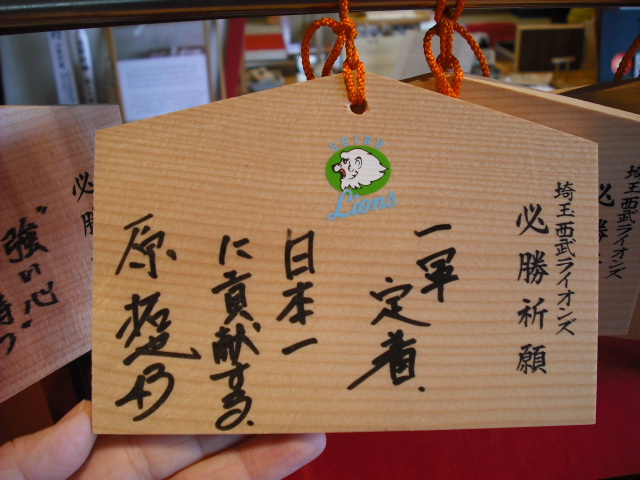 SEIBU
Lions
埼玉西武ライオンズ
必勝祈願
一軍
定着.
日本一
に貢献する.
原 拓也 43
必勝
"強い心"
埼玉西武ライオンズ
必